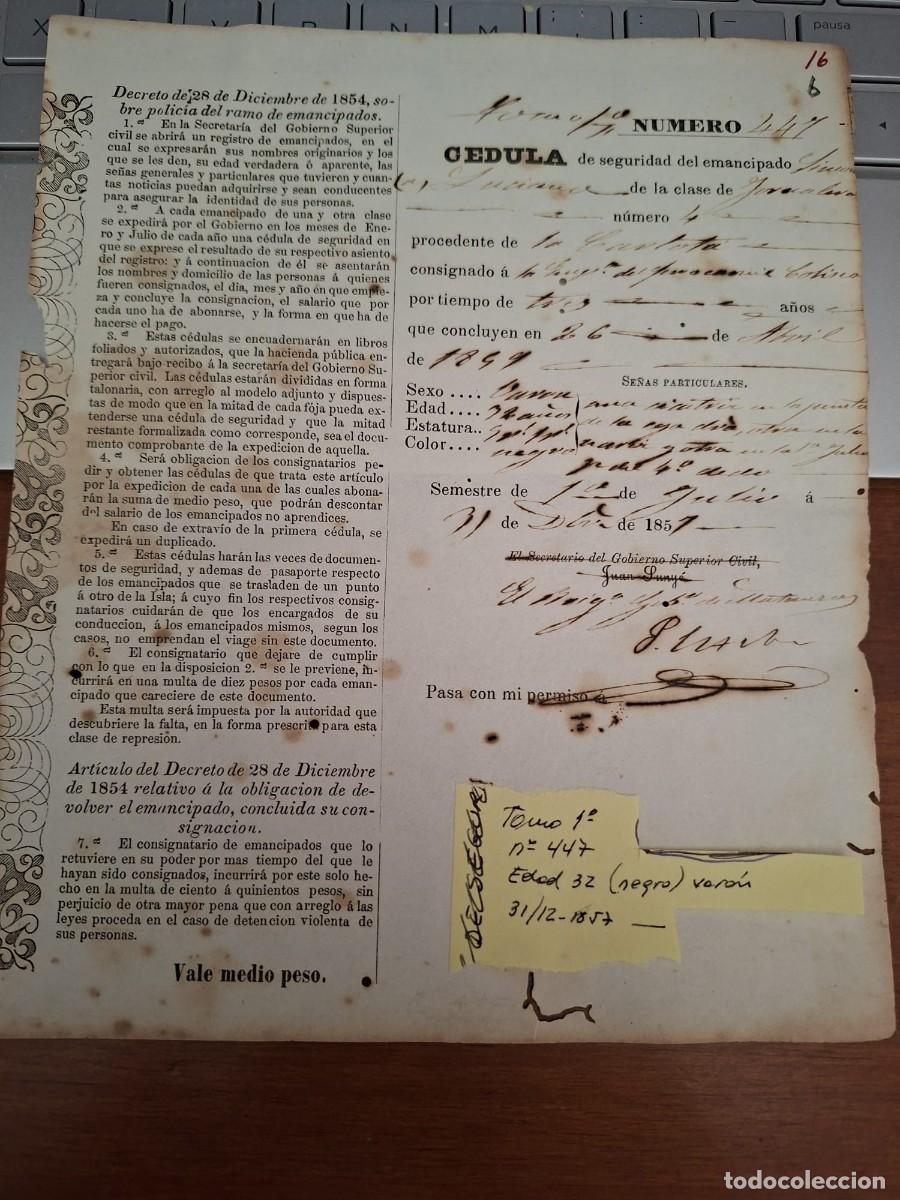 X
C
V
B
N
M
pausa
16
6
Decreto de 28 de Diciembre de 1854, so-
bre policía del ramo de emancipados.
1.ª En la Secretaría del Gobierno Superior
civil se abrirá un registro de emancipados, en el
cual se expresarán sus nombres originarios y los
que se les den, su edad verdadera ó aparente, las
señas generales y particulares que tuvieren y cuan-
tas noticias puedan adquirirse y sean conducentes
para asegurar la identidad de sus personas.
2.ª A cada emancipado de una y otra clase
se expedirá por el Gobierno en los meses de Ene-
ro y Julio de cada año una cédula de seguridad en
que se exprese el resultado de su respectivo asiento
del registro: y á continuacion de él se asentarán
los nombres y domicilio de las personas á quienes
fueren consignados, el dia, mes y año en que empie-
za y concluye la consignacion, el salario que por
cada uno ha de abonarse, y la forma en que ha de
hacerse el pago.
3.ª Estas cédulas se encuadernarán en libros
foliados y autorizados, que la hacienda pública en-
tregará bajo recibo á la secretaría del Gobierno Su-
perior civil. Las cédulas estarán divididas en forma
talonaria, con arreglo al modelo adjunto y dispues-
tas de modo que en la mitad de cada fója pueda ex-
tenderse una cédula de seguridad y que la mitad
restante formalizada como corresponde, sea el do-
cumento comprobante de la expedicion de aquella.
4.ª Será obligacion de los consignatarios pe-
dir y obtener las cédulas de que trata este artículo
por la expedicion de cada una de las cuales abona-
rán la suma de medio peso, que podrán descontar
del salario de los emancipados no aprendices.
En caso de extravío de la primera cédula, se
expedirá un duplicado.
5.ª Estas cédulas harán las veces de documen-
tos de seguridad, y ademas de pasaporte respecto
de los emancipados que se trasladen de un punto
á otro de la Isla; á cuyo fin los respectivos consig-
natarios cuidarán de que los encargados de su
conduccion, á los emancipados mismos, segun los
casos, no emprendan el viage sin este documento.
6.ª El consignatario que dejare de cumplir
con lo que en la disposicion 2.ª se le previene, in-
currirá en una multa de diez pesos por cada eman-
cipado que careciere de este documento.
Esta multa será impuesta por la autoridad que
descubriere la falta, en la forma prescrita para esta
clase de represión.
Artículo del Decreto de 28 de Diciembre
de 1854 relativo á la obligacion de de-
volver el emancipado, concluida su con-
signacion.
7.ª El consignatario de emancipados que lo
retuviere en su poder por mas tiempo del que le
hayan sido consignados, incurrirá por este solo he-
cho en la multa de ciento á quinientos pesos, sin
perjuicio de otra mayor pena que con arreglo á las
leyes proceda en el caso de detencion violenta de
sus personas.
Vale medio peso.
NUMERO 447
CEDULA de seguridad del emancipado
Luciano de la clase de
número 4
procedente de la Carlota
consignado á
por tiempo de tres años
que concluyen en 26 de Abril
de 1859
SEÑAS PARTICULARES.
Sexo .... Varon
Edad .... 32 años
Estatura..
Color.... negro
Semestre de 1º de Julio á
31 de Dbre de 1857
El Secretario del Gobierno Superior Civil,
Juan Sunyé
Pasa con mi permiso á
Tomo 1º
nº 447
Edad 32 (negro) varón
31/12-1857
todocoleccion